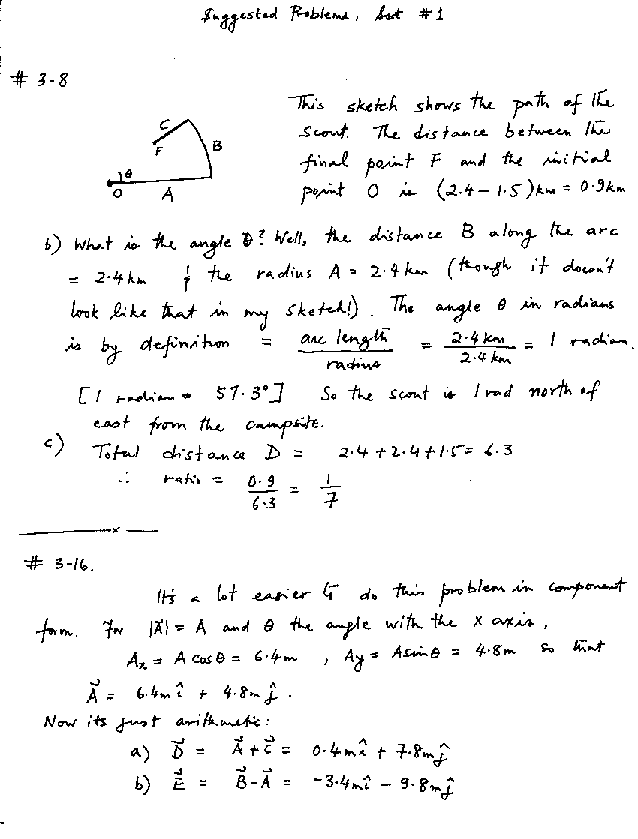 Suggested Problems, Set #1
# 3-8
This sketch shows the path of the
scout. The distance between the
final point F and the initial
point O is (2.4 - 1.5)km = 0.9km
C
F
B
θ
O
A
b) What is the angle θ? Well, the distance B along the arc
= 2.4km & the radius A = 2.4km (though it doesn't
look like that in my sketch!). The angle θ in radians
is by definition = arc length / radius = 2.4km / 2.4km = 1 radian.
[1 radian = 57.3°] So the scout is 1 rad north of
east from the campsite.
c) Total distance D = 2.4 + 2.4 + 1.5 = 6.3
∴ ratio = 0.9 / 6.3 = 1 / 7
x
# 3-16.
It's a lot easier to do this problem in component
form. For |A⃗| = A and θ the angle with the x axis,
Ax = A cosθ = 6.4m , Ay = A sinθ = 4.8m so that
A⃗ = 6.4m î + 4.8m ĵ.
Now its just arithmetic:
a) D⃗ = A⃗ + C⃗ = 0.4m î + 7.8m ĵ
b) E⃗ = B⃗ - A⃗ = -3.4m î - 9.8m ĵ